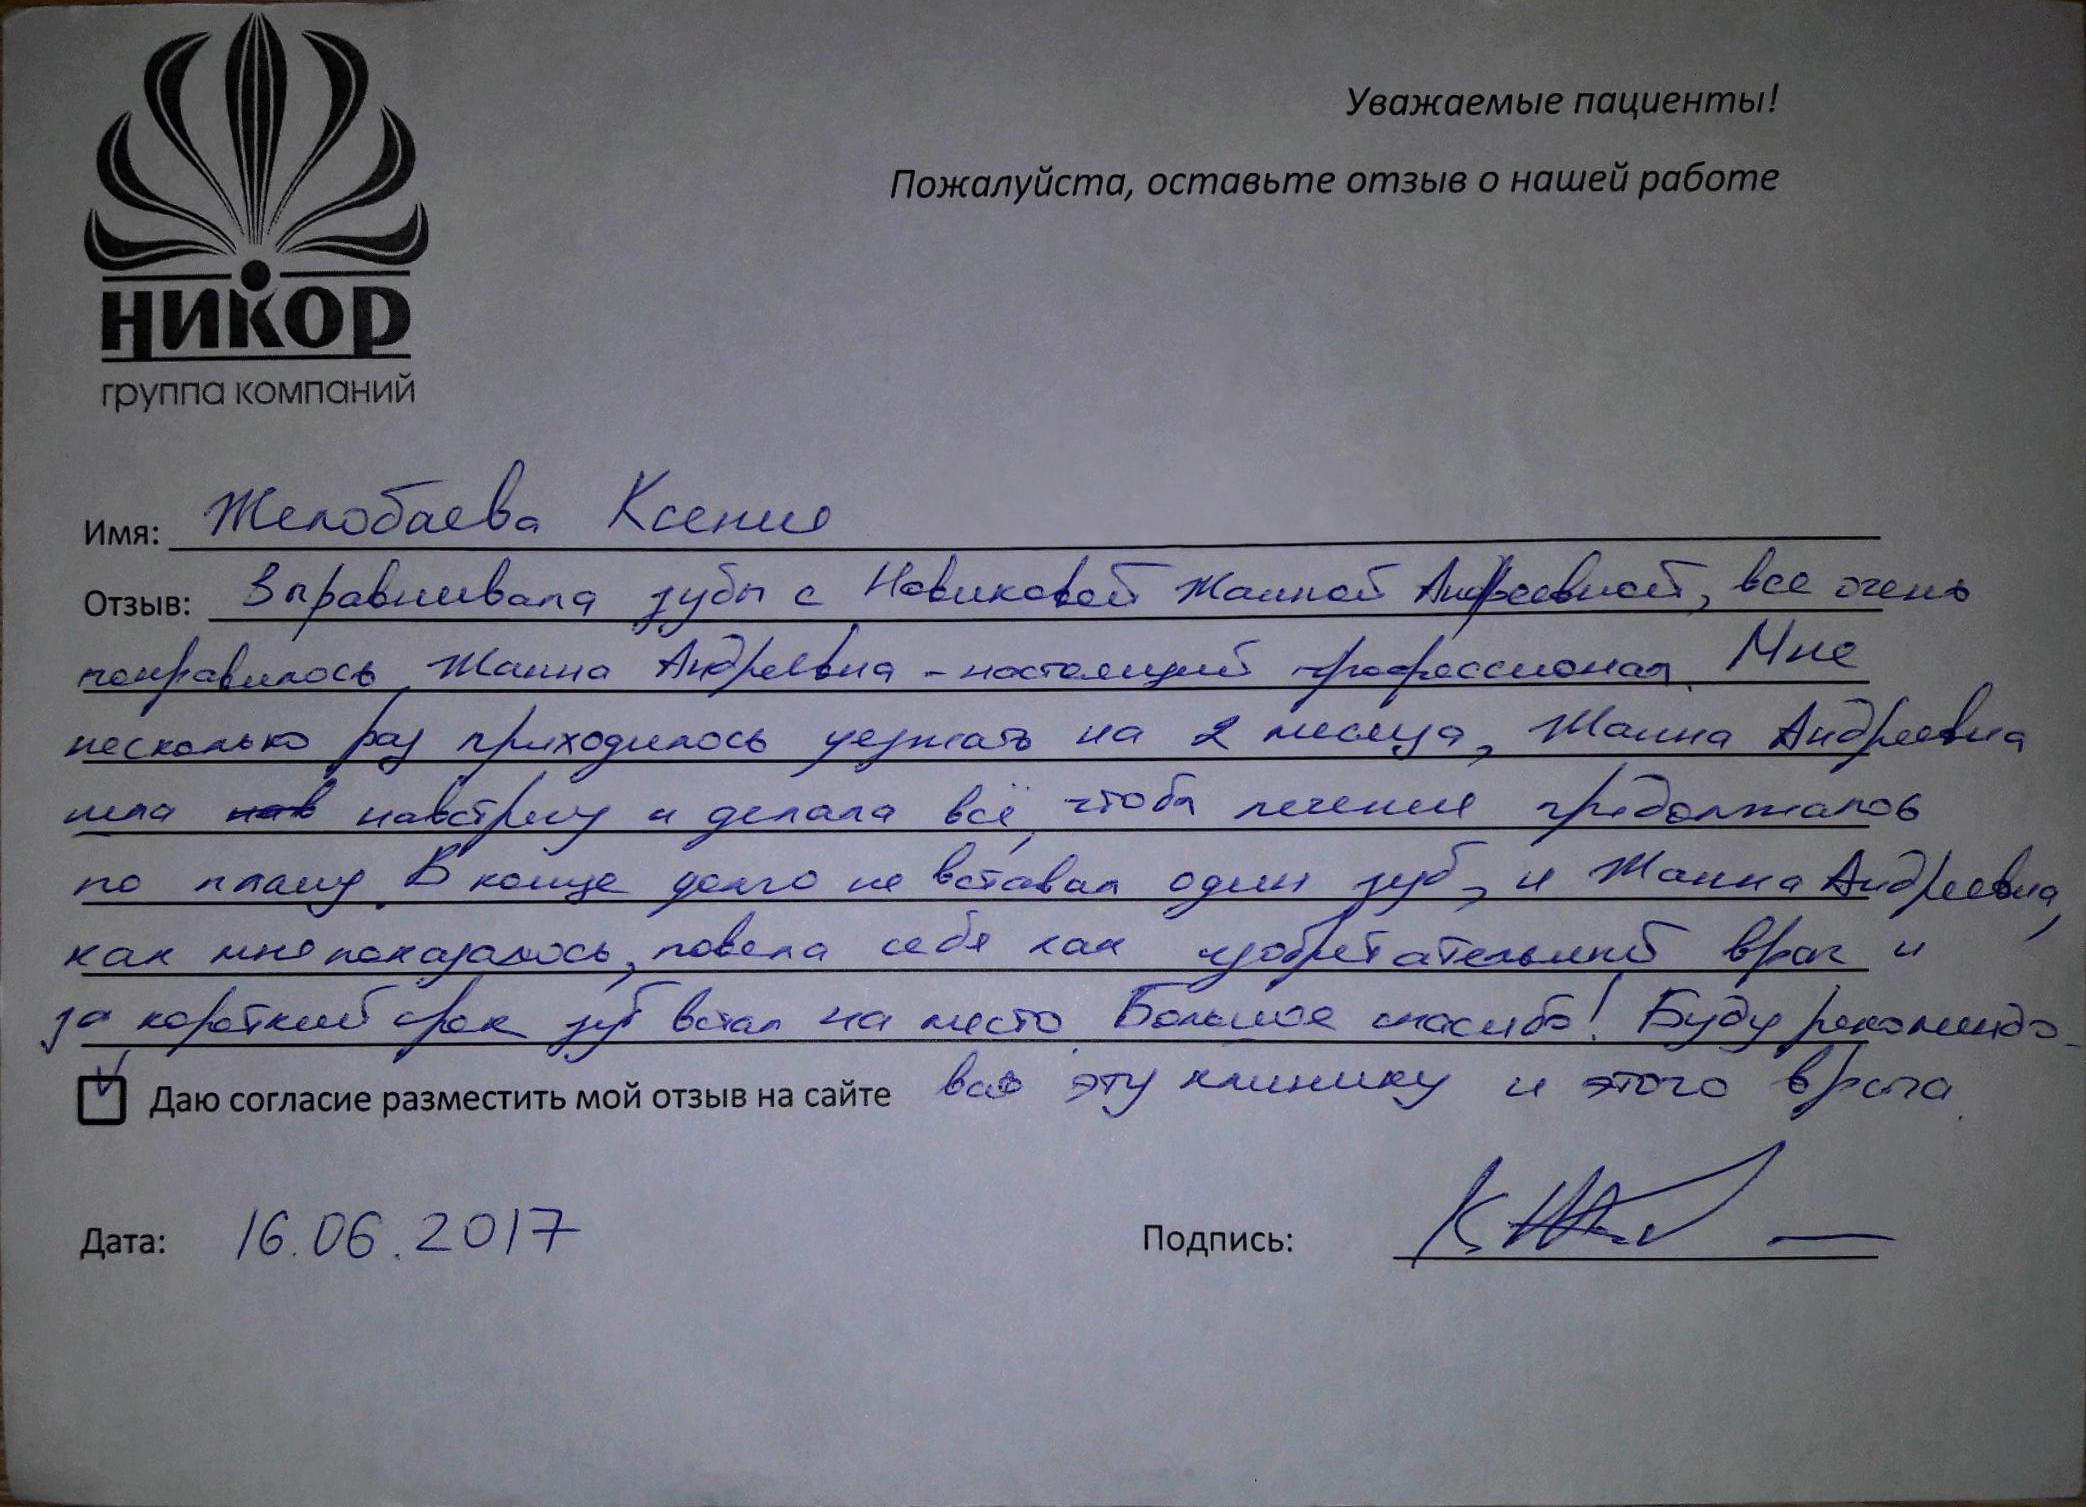 Уважаемые пациенты!
Пожалуйста, оставьте отзыв о нашей работе
НИКОР
группа компаний
Имя: Желобаева Ксения
Отзыв: Выравнивала зубы с Новиковой Жанной Андреевной, все очень
понравилось. Жанна Андреевна - настоящий профессионал. Мне
несколько раз приходилось уезжать на 2 месяца, Жанна Андреевна
шла навстречу и делала всё, чтобы лечение продолжалось
по плану. В конце долго не вставал один зуб, и Жанна Андреевна,
как мне показалось, повела себя как изобретательный врач и
за короткий срок зуб встал на место. Большое спасибо! Буду рекомендо-
Даю согласие разместить мой отзыв на сайте вать эту клинику и этого врача.
Дата: 16.06.2017 Подпись: